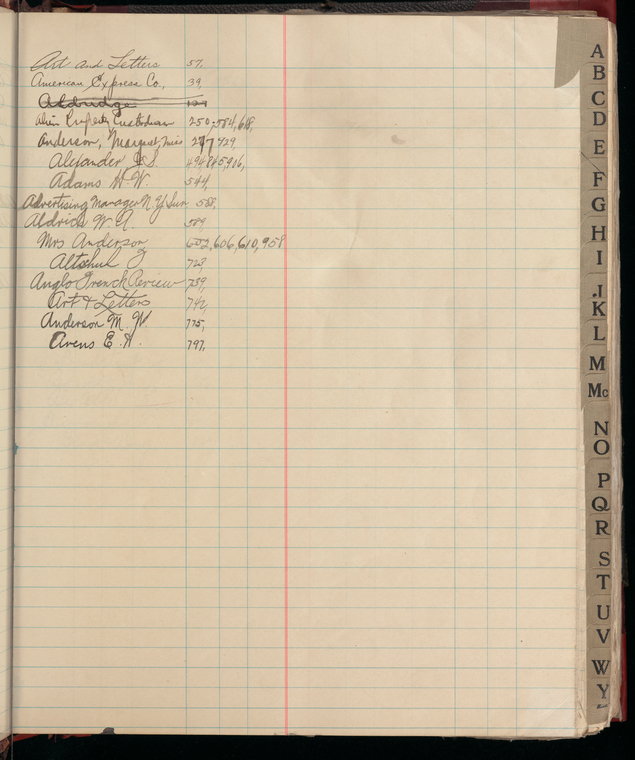 Art and Letters 57,
American Express Co., 39,
Aldridge
Alien Property Custodian 250, 584, 618,
Anderson, Margaret Miss 429
Alexander J.S.
Adams H.W. 544,
Advertising Manager N.Y. Sun 558,
Aldrich W.A. 589,
Mrs Anderson 602, 606, 610, 958
Altschul F 723,
Anglo French Review 739,
Art & Letters 742,
Anderson M. W 775,
Arens E. H. 797,
A
B
C
D
E
F
G
H
I
J
K
L
M
Mc
N
O
P
Q
R
S
T
U
V
W
Y